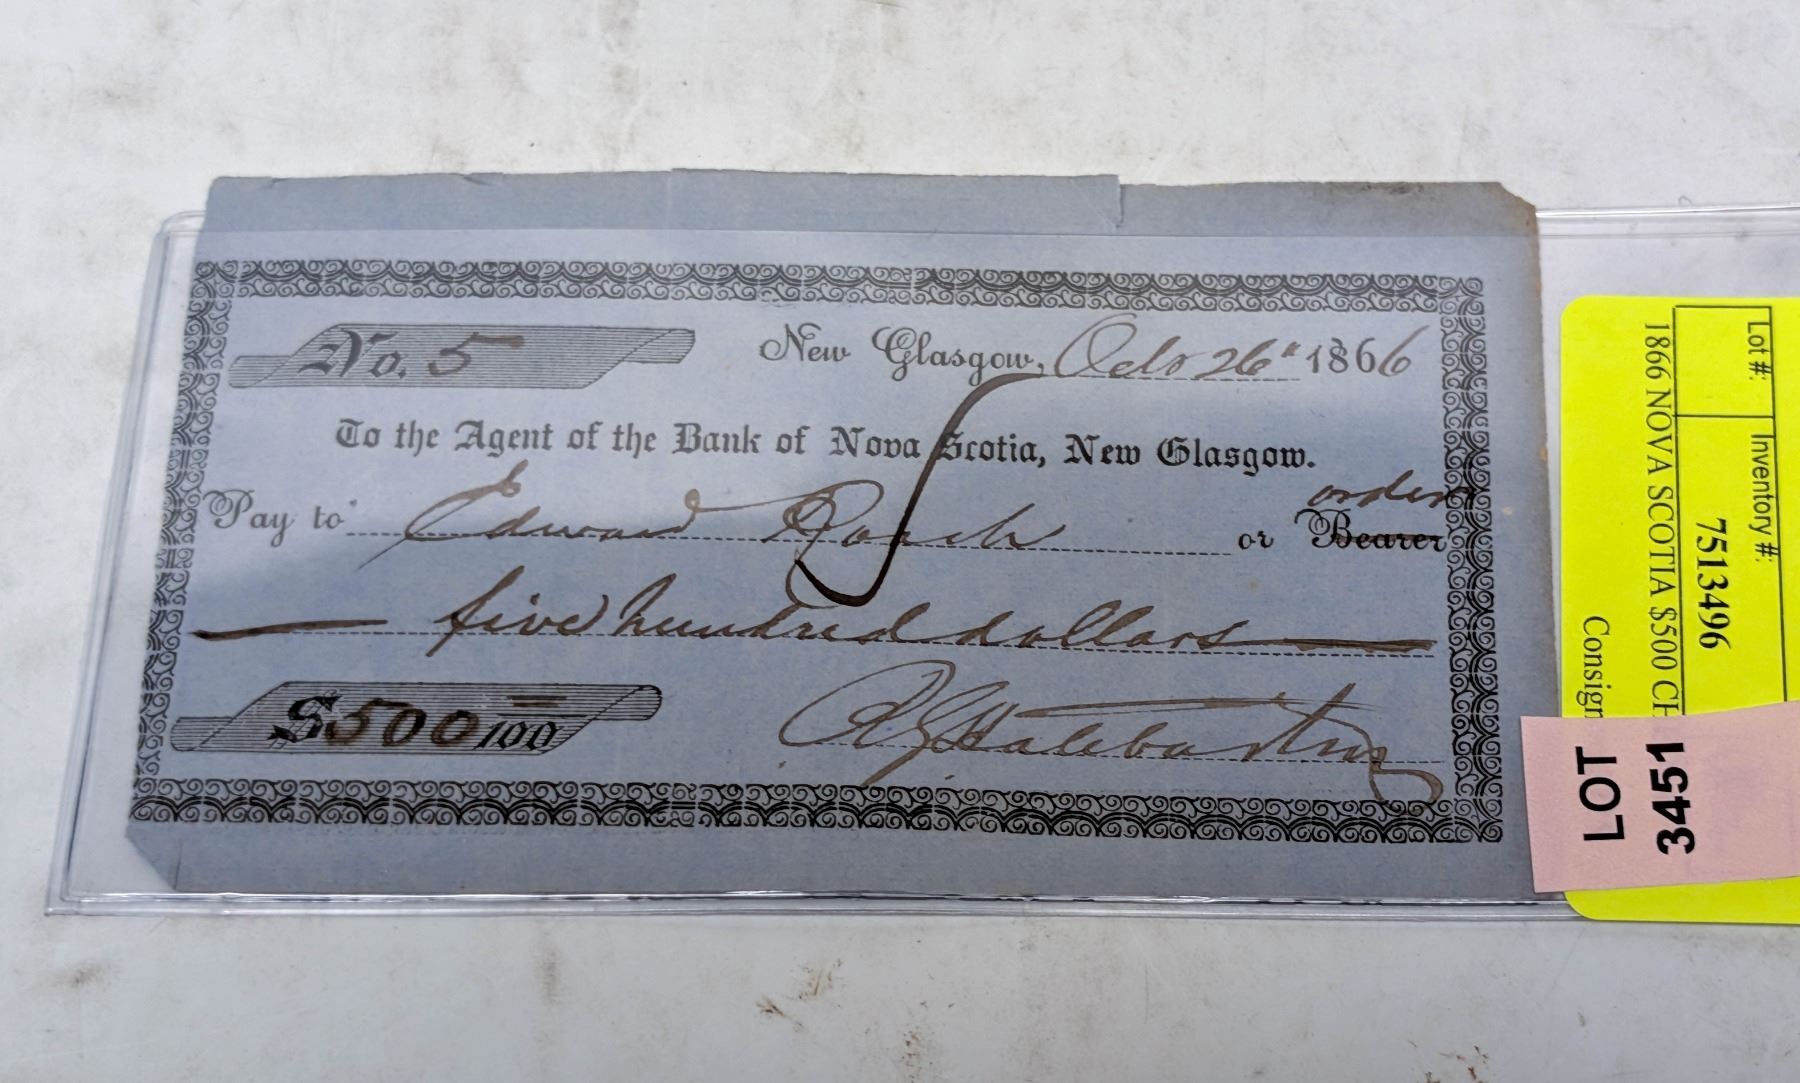 No. 5
New Glasgow, Octr 26" 1866
To the Agent of the Bank of Nova Scotia, New Glasgow.
order
Pay to Edward Roach or Bearer
five hundred dollars
$500/100
Lot #:
Inventory #:
7513496
1866 NOVA SCOTIA $500 CH
Consign
LOT
3451